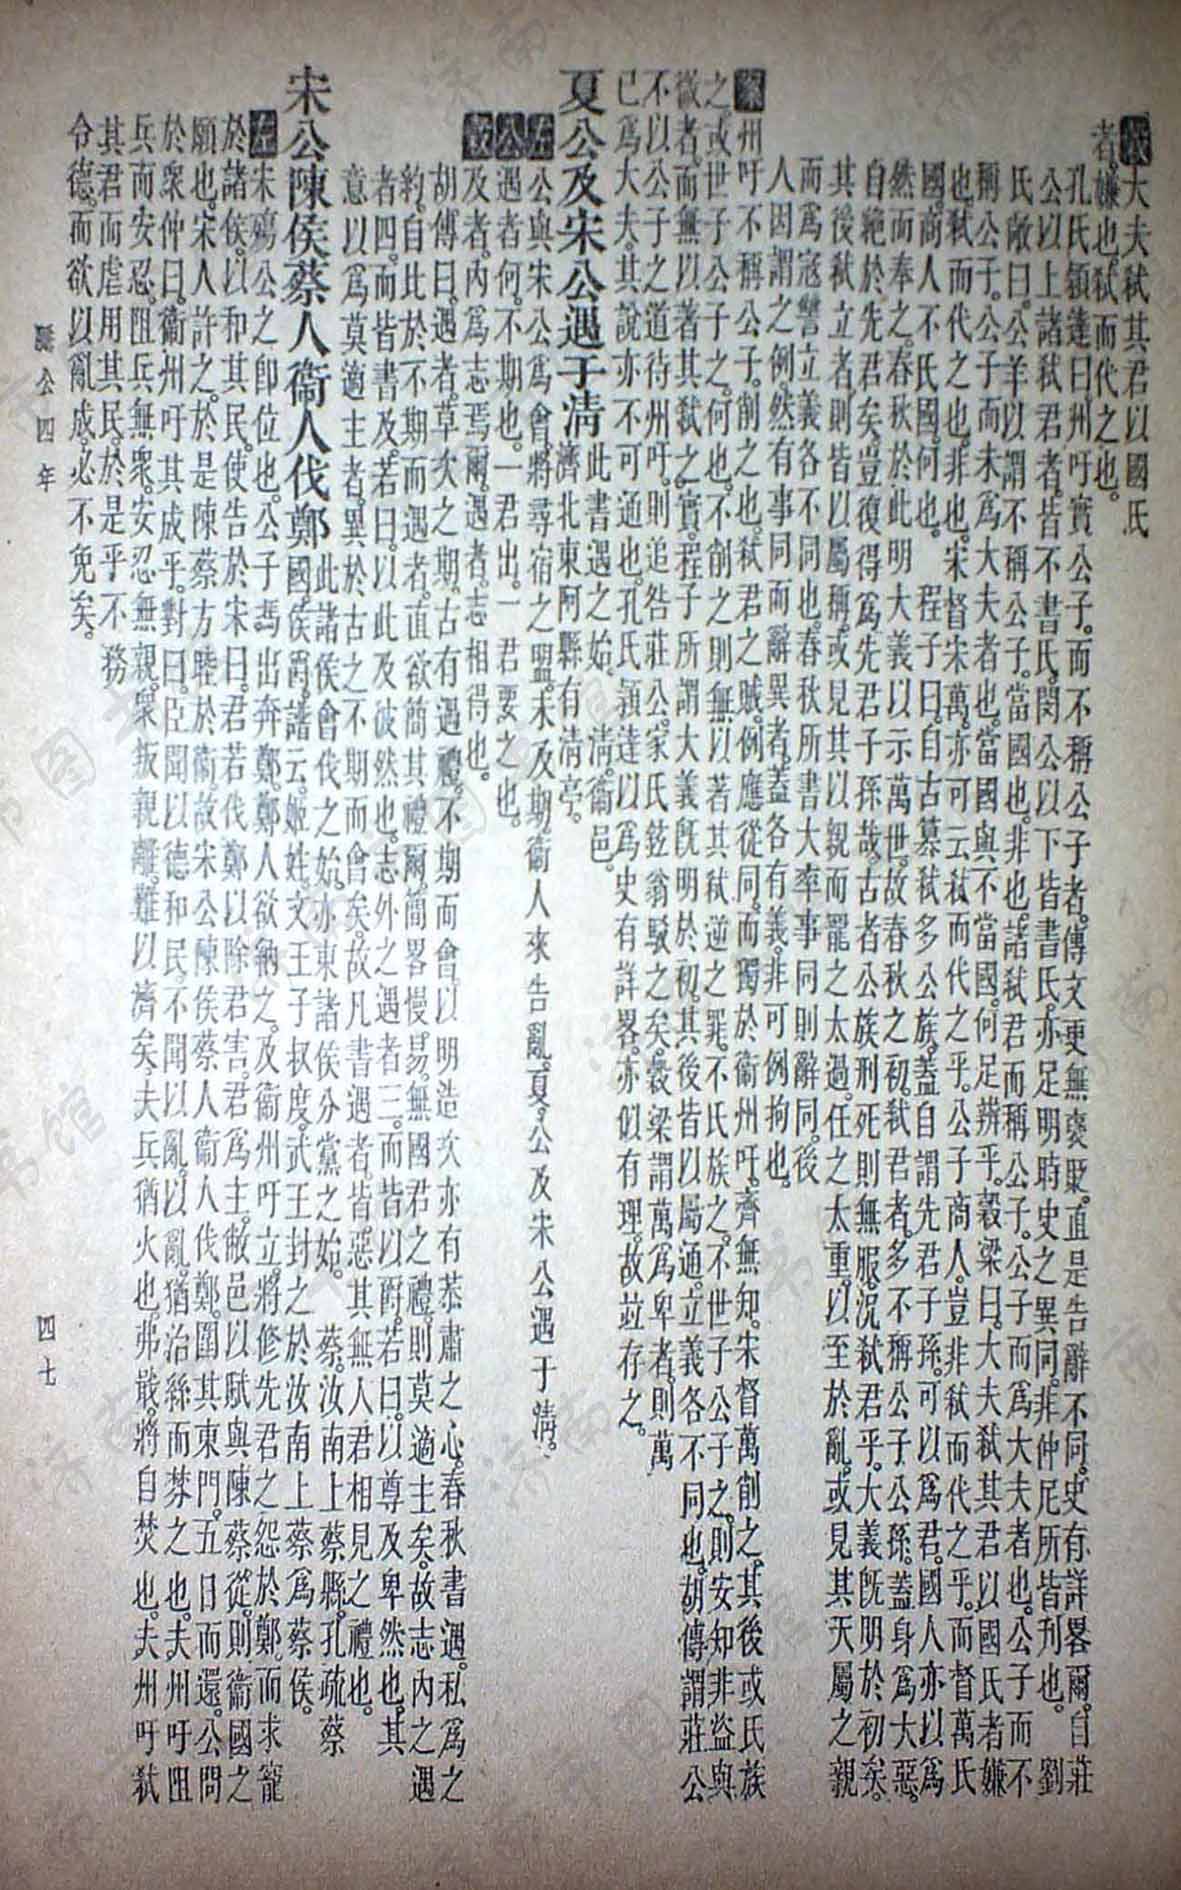 穀大夫弑其君以國氏
者。嫌也。弑而代之也。
孔氏穎達曰。州吁實公子。而不稱公子者。傳文更無褒貶。直是告辭不同。史有詳畧爾。自莊
公以上諸弑君者。皆不書氏。閔公以下皆書氏。亦足明時史之異同。非仲尼所皆刊也。劉
氏敞曰。公羊以謂不稱公子。當國也。非也。諸弑君而稱公子。公子而爲大夫者也。公子而不
稱公子。公子而未爲大夫者也。當國與不當國。何足辨乎。穀梁曰。大夫弑其君以國氏者嫌
也。弑而代之也。非也。宋督宋萬。亦可云弑而代之乎。公子商人。豈非弑而代之乎。而督萬氏
國。商人不氏國。何也。程子曰。自古慕弑多公族。蓋自謂先君子孫。可以爲君。國人亦以爲
然而奉之。春秋於此明大義以示萬世。故春秋之初。弑君者。多不稱公子公孫。蓋身爲大惡。
自絶於先君矣。豈復得爲先君子孫哉。古者公族刑死則無服。況弑君乎。大義旣明於初矣。
其後弑立者。則皆以屬稱。或見其以親而寵之太過。任之太重。以至於亂。或見其天屬之親
而爲寇讐。立義各不同也。春秋所書大率事同則辭同。後
人因謂之例。然有事同而辭異者。蓋各有義。非可例拘也。
案州吁不稱公子。削之也。弑君之賊。例應從同。而獨於衞州吁。齊無知。宋督萬削之。其後或氏族
之。或世子公子之。何也。不削之則無以著其弑逆之罪。不氏族之。不世子公子之。則安知非盜與
微者。而無以著其弑之實。程子所謂大義旣明於初。其後皆以屬通。立義各不同也。胡傳謂莊公
不以公子之道待州吁。則追咎莊公。家氏鉉翁駁之矣。穀梁謂萬爲卑者。則萬
已爲大夫。其說亦不可通也。孔氏穎達以爲史有詳畧。亦似有理。故竝存之。
夏公及宋公遇于淸此書遇之始。淸。衞邑。
濟北東阿縣有淸亭。
左公與宋公爲會。將尋宿之盟。未及期。衞人來告亂。夏。公及宋公遇于淸。
公遇者何。不期也。一君出。一君要之也。
穀及者。內爲志焉爾。遇者。志相得也。
胡傳曰。遇者。草次之期。古有遇禮。不期而會。以明造次亦有恭肅之心。春秋書遇。私爲之
約。自比於不期而遇者。直欲簡其禮爾。簡畧慢易。無國君之禮。則莫適主矣。故志內之遇
者四。而皆書及。若曰。以此及彼然也。志外之遇者三。而皆以爵。若曰。以尊及卑然也。其
意以爲莫適主者。異於古之不期而會矣。故凡書遇者。皆惡其無人君相見之禮也。
宋公陳侯蔡人衞人伐鄭此諸侯會伐之始。亦東諸侯分黨之始。蔡。汝南上蔡縣。孔疏蔡
國侯爵。譜云。姬姓。文王子叔度。武王封之於汝南上蔡爲蔡侯。
左宋殤公之卽位也。公子馮出奔鄭。鄭人欲納之。及衞州吁立。將修先君之怨於鄭。而求寵
於諸侯。以和其民。使告於宋曰。君若伐鄭以除君害。君爲主。敝邑以賦與陳蔡從。則衞國之
願也。宋人許之。於是陳蔡方睦於衞。故宋公陳侯蔡人衞人伐鄭。圍其東門。五日而還。公問
於衆仲曰。衞州吁其成乎。對曰。臣聞以德和民。不聞以亂。以亂。猶治絲而棼之也。夫州吁阻
兵而安忍。阻兵無衆。安忍無親。衆叛親離。難以濟矣。夫兵猶火也。弗戢。將自焚也。夫州吁弑
其君而虐用其民。於是乎不務
令德。而欲以亂成。必不免矣。
隱公四年
四七